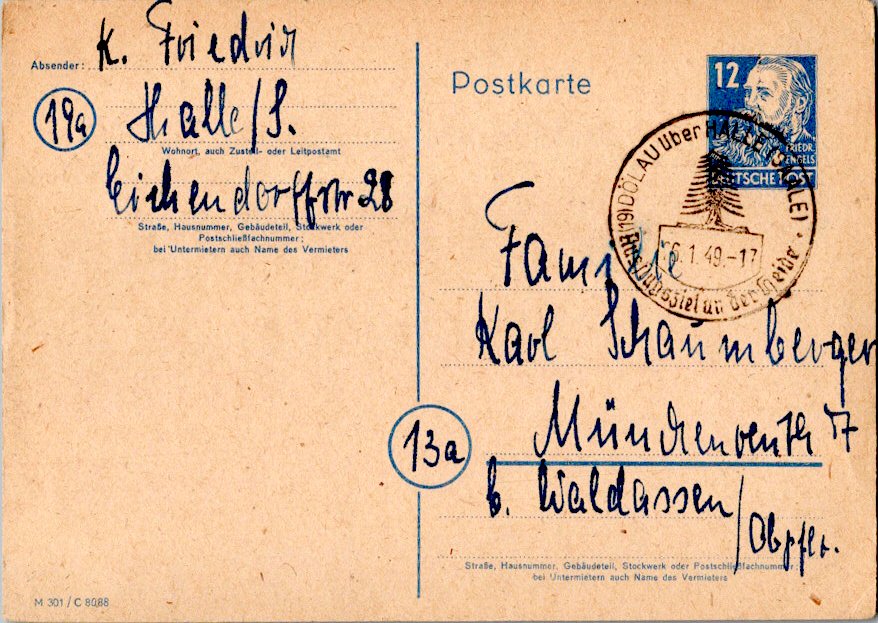 Absender: K. Friedrich
19a Halle/S.
Wohnort, auch Zustell- oder Leitpostamt
Eichendorffstr 28
Straße, Hausnummer, Gebäudeteil, Stockwerk oder
Postschließfachnummer;
bei Untermietern auch Name des Vermieters
Postkarte
12
FRIEDR.
ENGELS
DEUTSCHE POST
(19) DÖLAU über HALLE (SAALE)
6.1.49.-17
Ausflugsziel an der Heide
Familie
Karl Schaumberger
13a
Münchenreuth 57
b. Waldassen/
Obpflz.
Straße, Hausnummer, Gebäudeteil, Stockwerk oder Postschließfachnummer;
bei Untermietern auch Name des Vermieters
M 301 / C 8088